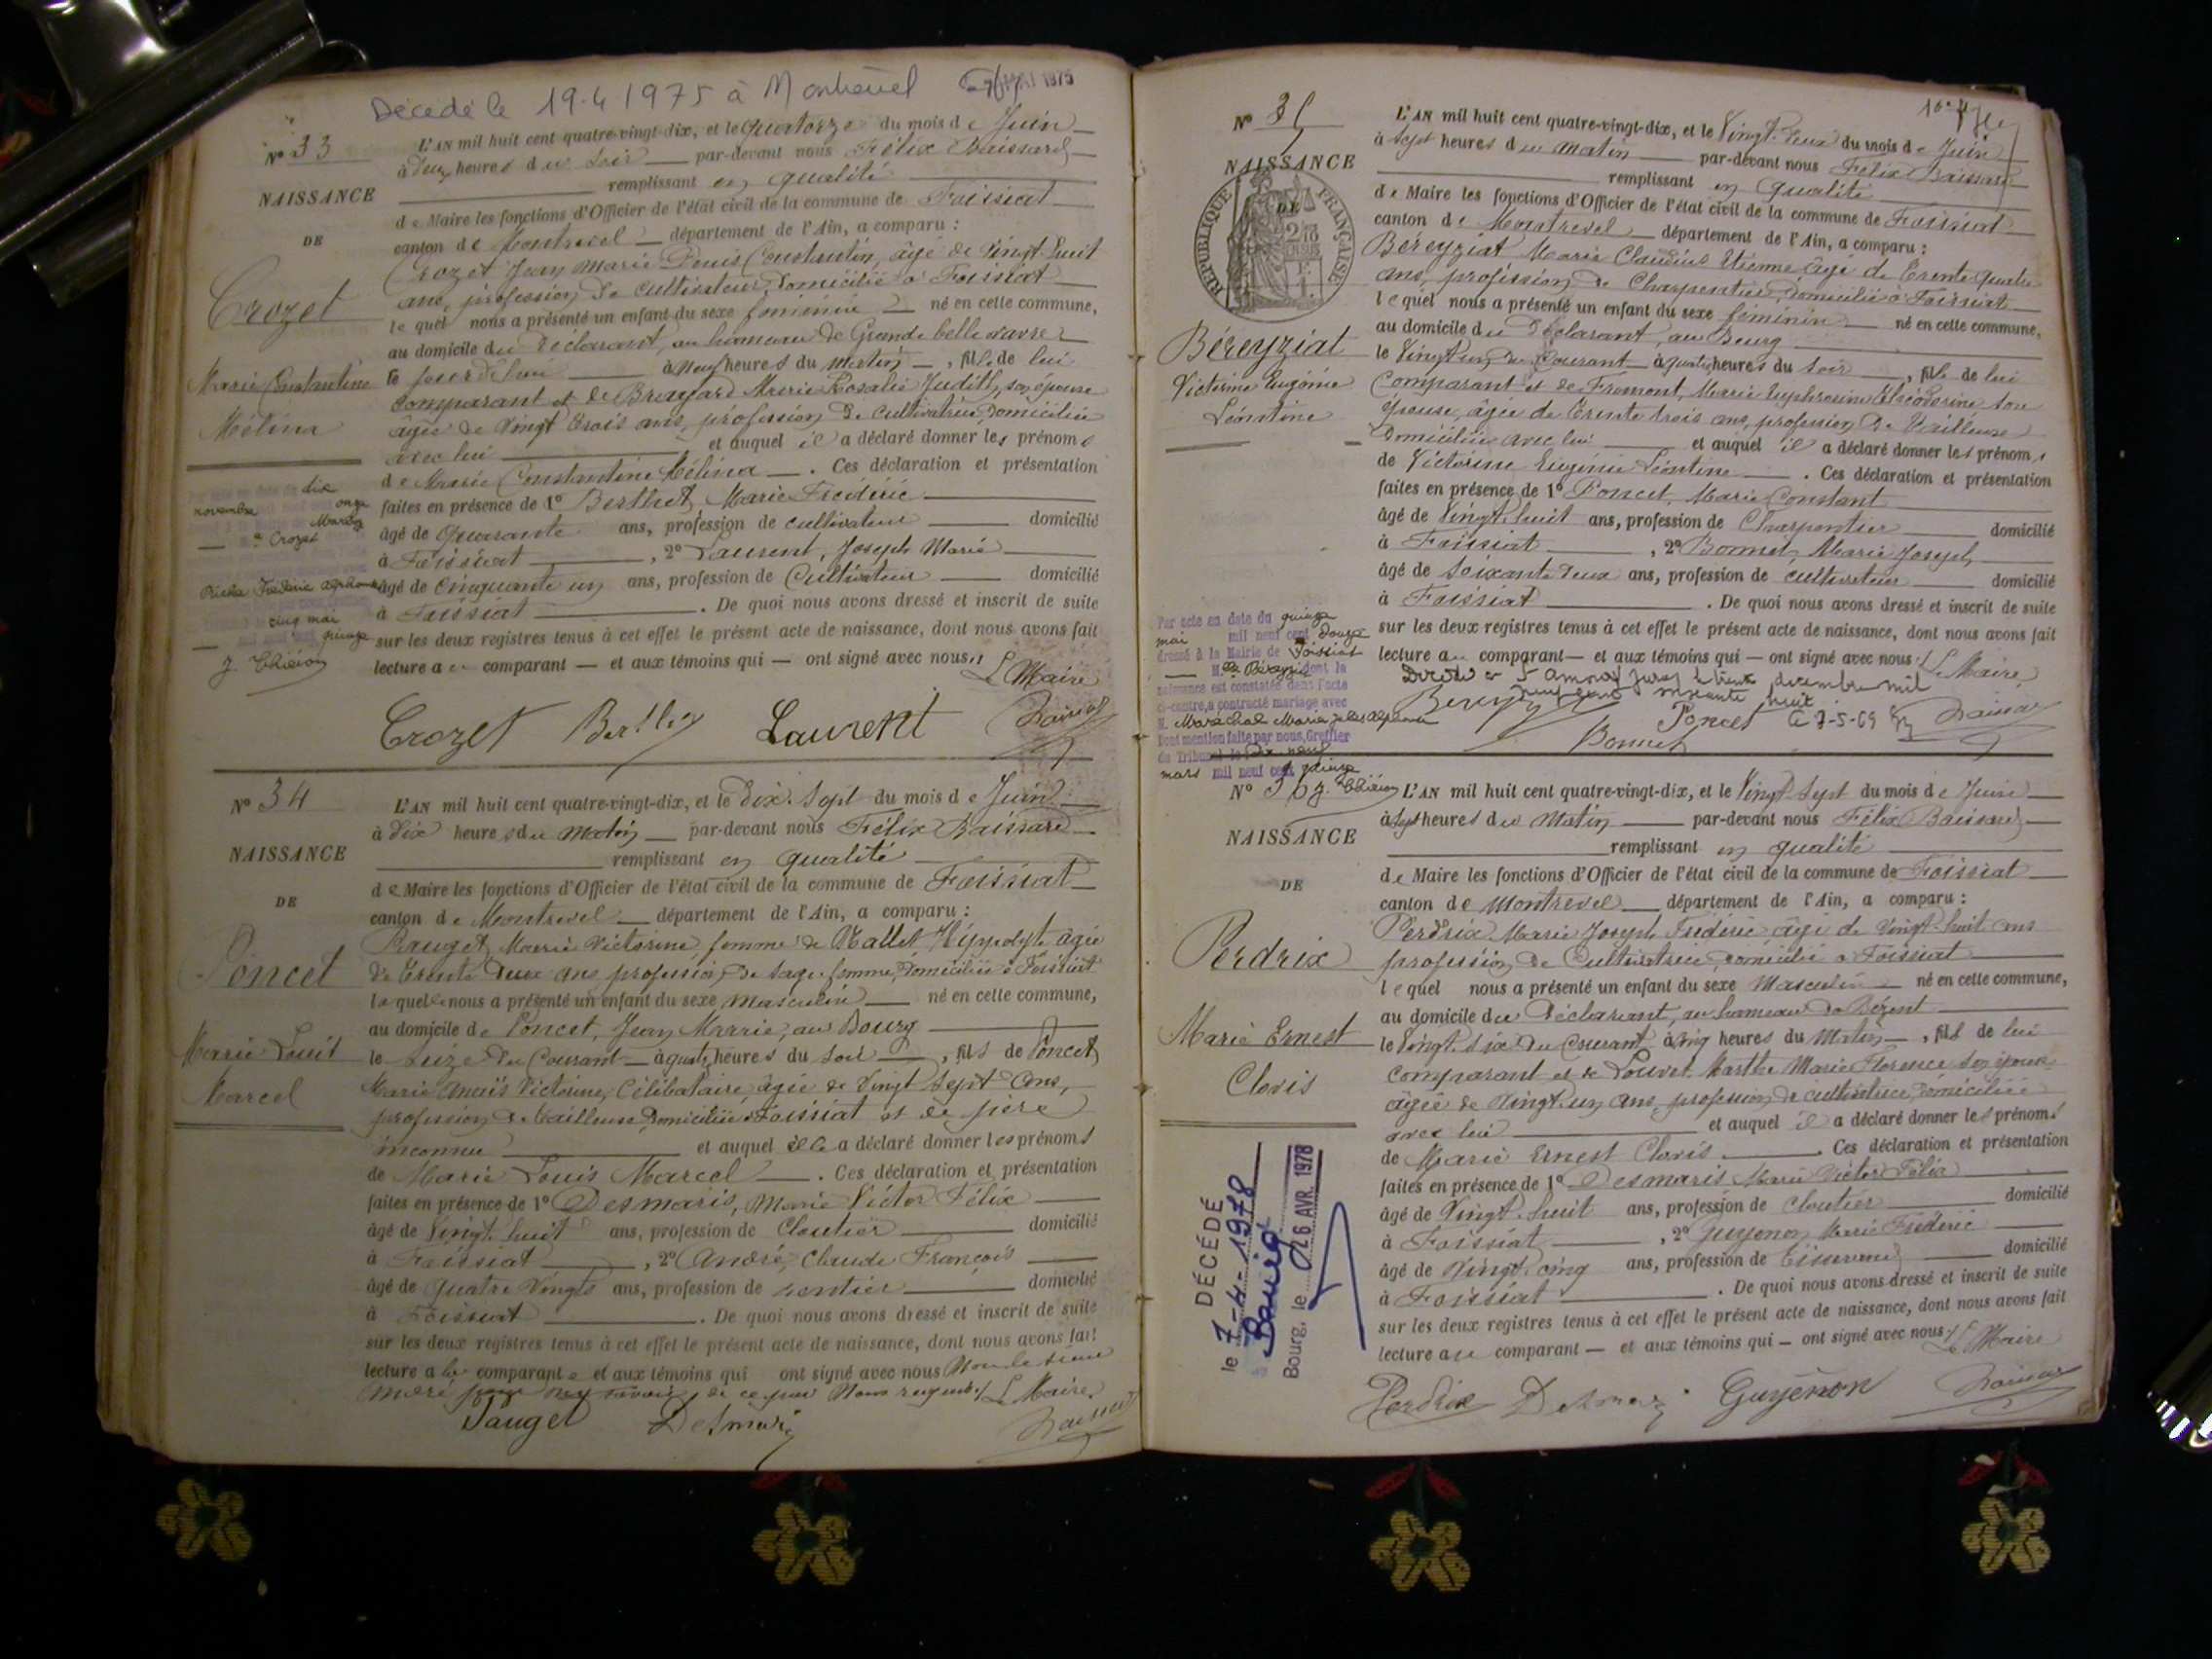 Décédé le 19.4 1975 à Montrevel 1975
N° 33
NAISSANCE
DE
Crozet
Marie Constantine
Mélina
dix
novembre onze
Crozet
cinq mai
quinze
L'AN mil huit cent quatre-vingt-dix, et le quatorze du mois de Juin
à deux heures du soir par-devant nous Félix Baissard
remplissant en qualité
de Maire les fonctions d'Officier de l'état civil de la commune de Foissiat
canton de Montrevel département de l'Ain, a comparu :
Crozet Jean Marie Denis Constantin, âgé de vingt-huit
ans, profession de cultivateur, domicilié à Foissiat
lequel nous a présenté un enfant du sexe féminin né en cette commune,
au domicile du déclarant, au hameau de Grande
le jourd'hui à neuf heures du matin, fille de lui
comparant et de Marie Rosalie Judith, son épouse
âgée de vingt trois ans, profession de cultivatrice, domiciliée
avec lui et auquel il a déclaré donner les prénoms
de Marie Constantine Mélina. Ces déclaration et présentation
faites en présence de 1° Berthet, Marie Frédéric
âgé de quarante ans, profession de cultivateur domicilié
à Foissiat, 2° Laurent, Joseph Marie
âgé de cinquante un ans, profession de cultivateur domicilié
à Foissiat. De quoi nous avons dressé et inscrit de suite
sur les deux registres tenus à cet effet le présent acte de naissance, dont nous avons fait
lecture au comparant — et aux témoins qui — ont signé avec nous. Le Maire
Crozet Laurent
N° 34
NAISSANCE
DE
Poncet
Marie Louis
Marcel
L'AN mil huit cent quatre-vingt-dix, et le dix-sept du mois de Juin
à dix heures du matin par-devant nous Félix Baissard
remplissant en qualité
de Maire les fonctions d'Officier de l'état civil de la commune de Foissiat
canton de Montrevel département de l'Ain, a comparu :
Pauget, Marie Victorine, femme de Mallet Hyppolyte âgée
de trente deux ans, profession de sage-femme, domiciliée à Foissiat
laquelle nous a présenté un enfant du sexe masculin né en cette commune,
au domicile de Poncet, Jean Marie, au Bourg
le seize du courant à quatre heures du soir, fils de Poncet
Marie Victorine, célibataire, âgée de vingt sept ans,
profession de tailleuse, domiciliée à Foissiat et de père
inconnu et auquel elle a déclaré donner les prénoms
de Marie Louis Marcel. Ces déclaration et présentation
faites en présence de 1° Desmaris, Marie Victor Félix
âgé de vingt-huit ans, profession de cloutier domicilié
à Foissiat, 2° André, Claude François
âgé de quatre vingts ans, profession de rentier domicilié
à Foissiat. De quoi nous avons dressé et inscrit de suite
sur les deux registres tenus à cet effet le présent acte de naissance, dont nous avons fait
lecture à la comparante et aux témoins qui ont signé avec nous
de ce par nous requis. Le Maire
Pauget Desmaris
N° 35
NAISSANCE
DE
RÉPUBLIQUE FRANÇAISE
Béreyziat
Victorine Eugénie
Léontine
Par acte en date du quinze
mai mil neuf cent douze
dressé à la Mairie de Foissiat
dont la
naissance est constatée dans l'acte
ci-contre, a contracté mariage avec
M. Maréchal Marie Jules
Dont mention faite par nous, Greffier
du Tribunal le dix neuf
mars mil neuf cent quinze
L'AN mil huit cent quatre-vingt-dix, et le vingt-deux du mois de Juin
à sept heures du matin par-devant nous Félix Baissard
remplissant en qualité
de Maire les fonctions d'Officier de l'état civil de la commune de Foissiat
canton de Montrevel département de l'Ain, a comparu :
Béreyziat Marie Claudius Etienne âgé de trente quatre
ans, profession de Charpentier, domicilié à Foissiat
lequel nous a présenté un enfant du sexe féminin né en cette commune,
au domicile du déclarant, au Bourg
le vingt un du courant à quatre heures du soir, fille de lui
comparant et de Fromont, Marie Euphrosine son
épouse, âgée de trente trois ans, profession de tailleuse
domiciliée avec lui et auquel il a déclaré donner les prénoms
de Victorine Eugénie Léontine. Ces déclaration et présentation
faites en présence de 1° Poncet, Marie Constant
âgé de vingt-huit ans, profession de Charpentier domicilié
à Foissiat, 2° Bonnet, Marie Joseph
âgé de soixante deux ans, profession de cultivateur domicilié
à Foissiat. De quoi nous avons dressé et inscrit de suite
sur les deux registres tenus à cet effet le présent acte de naissance, dont nous avons fait
lecture au comparant — et aux témoins qui — ont signé avec nous. Le Maire
Décédée à St Amour Jura le trente décembre mil
neuf cent soixante huit
Poncet le 7-5-69
Bonnet
N° 36
NAISSANCE
DE
Perdrix
Marie Ernest
Clovis
DÉCÉDÉ
le 7-4-1978
Bourg, le 26 AVR. 1978
L'AN mil huit cent quatre-vingt-dix, et le vingt-sept du mois de Juin
à sept heures du matin par-devant nous Félix Baissard
remplissant en qualité
de Maire les fonctions d'Officier de l'état civil de la commune de Foissiat
canton de Montrevel département de l'Ain, a comparu :
Perdrix Marie Joseph Frédéric âgé de vingt-huit ans
profession de Cultivatrice, domicilié à Foissiat
lequel nous a présenté un enfant du sexe masculin né en cette commune,
au domicile du déclarant, au hameau de
le vingt-six du courant à cinq heures du matin, fils de lui
comparant et de Louvet Marthe Marie Florence son épouse
âgée de vingt-un ans, profession de cultivatrice, domiciliée
avec lui et auquel il a déclaré donner les prénoms
de Marie Ernest Clovis. Ces déclaration et présentation
faites en présence de 1° Desmaris Marie Victor Félix
âgé de vingt-huit ans, profession de cloutier domicilié
à Foissiat, 2° Guyenon Marie Frédéric
âgé de vingt-cinq ans, profession de domicilié
à Foissiat. De quoi nous avons dressé et inscrit de suite
sur les deux registres tenus à cet effet le présent acte de naissance, dont nous avons fait
lecture au comparant — et aux témoins qui — ont signé avec nous. Le Maire
Perdrix Desmaris Guyenon